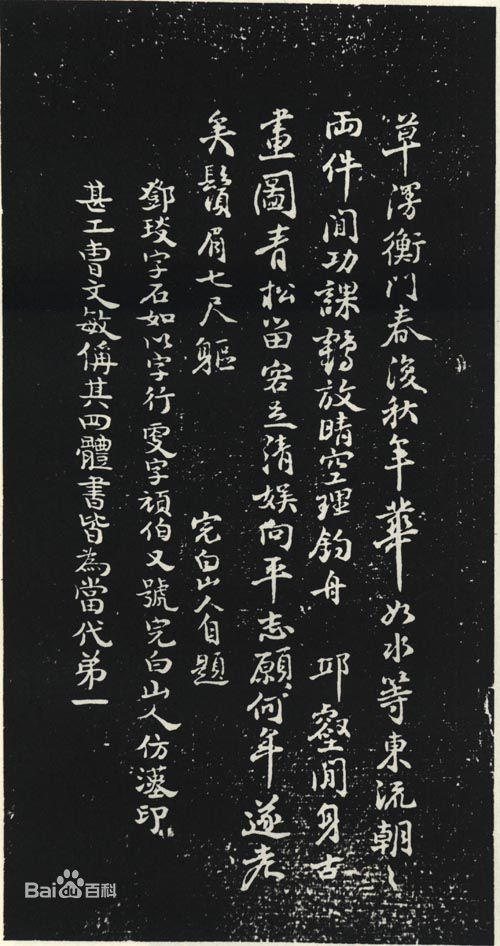 草漫衡門春復秋年華如水等東流朝〻
両件閒功課鶴放晴空理釣舟　邱壑閒身古
畫圖青松留客足清娛向平志願何年遂老
矣鬚眉七尺軀　完白山人自題
鄧琰字石如以字行更字頑伯又號完白山人仿漢印
甚工曹文敏偁其四體書皆為當代弟一
Baidu百科